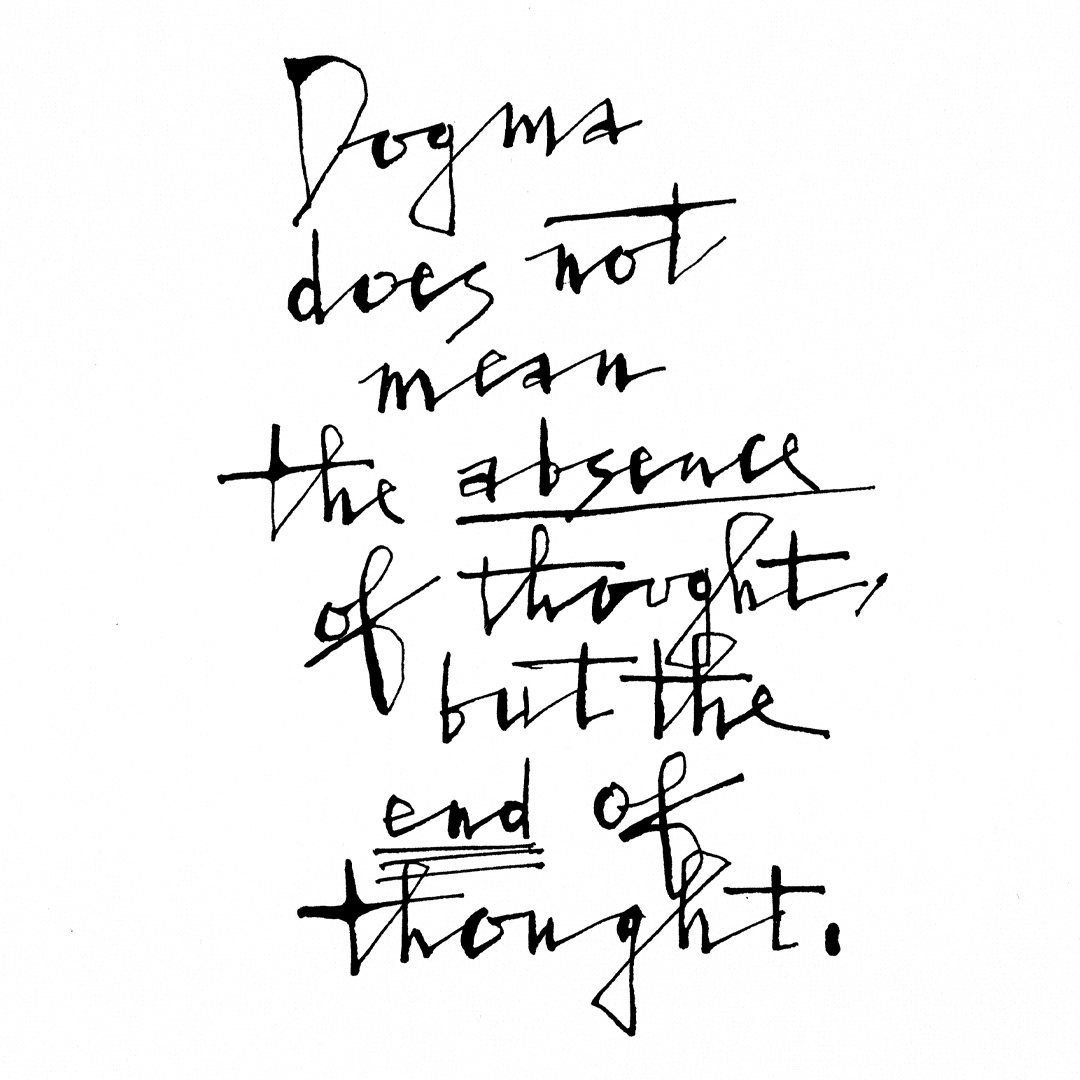 Dogma
does not
mean
the absence
of thought,
but the
end of
thought.